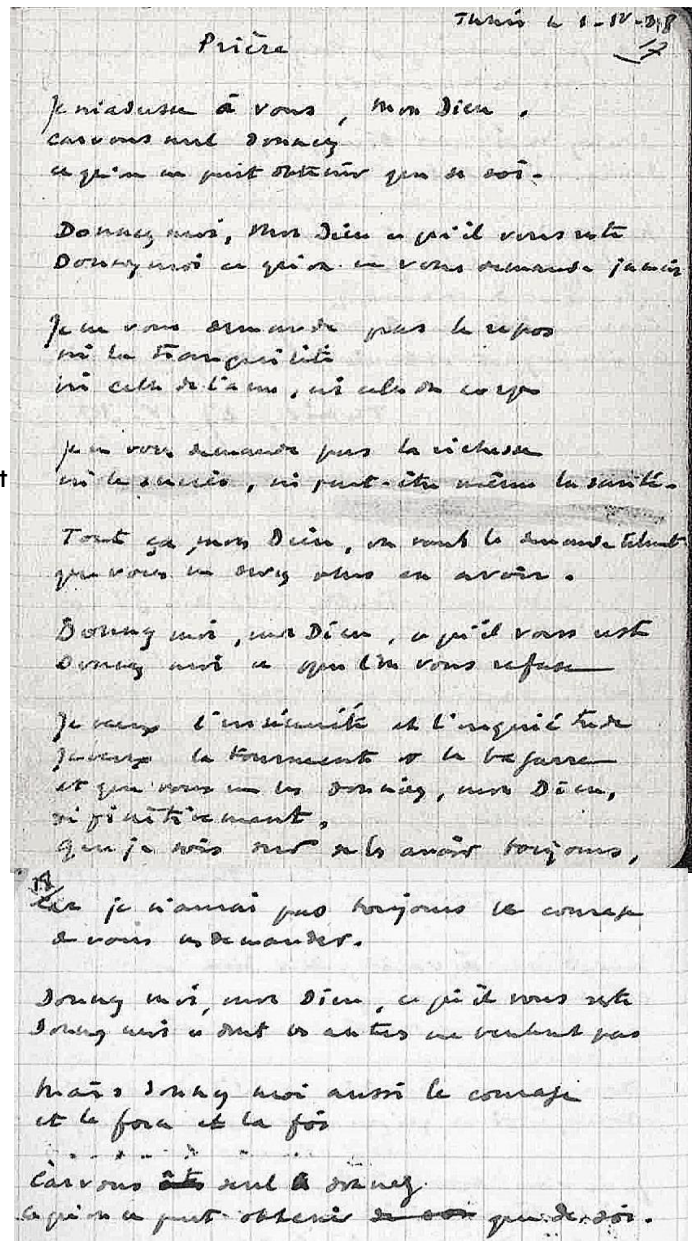 Tunis le 1-IV-38
17
Prière
Je m'adresse à vous, mon Dieu.
car vous seul donnez
ce qu'on ne peut obtenir que de soi.
Donnez moi, mon Dieu ce qu'il vous reste
Donnez moi ce qu'on ne vous demande jamais
Je ne vous demande pas le repos
ni la tranquillité
ni celle de l'âme, ni celle du corps
Je ne vous demande pas la richesse
t
ni le succès, ni peut-être même la santé.
Tout ça, mon Dieu, on vous le demande tellement
que vous ne devez plus en avoir.
Donnez moi, mon Dieu, ce qu'il vous reste
Donnez moi ce que l'on vous refuse
Je veux l'insécurité et l'inquiétude
Je veux la tourmente et la bagarre
et que vous me les donniez, mon Dieu,
définitivement.
Que je sois sûr de les avoir toujours,
18
Car je n'aurai pas toujours le courage
de vous les demander.
Donnez moi, mon Dieu, ce qu'il vous reste
Donnez moi ce dont les autres ne veulent pas
Mais donnez moi aussi le courage
et la force et la foi
Car vous êtes seul à donnez
ce qu'on ne peut obtenir de soi que de soi.